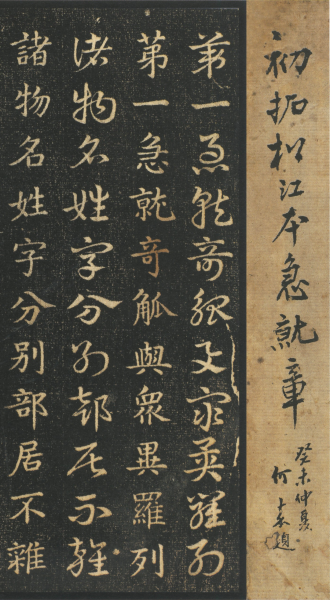 初拓松江本急就章
癸未仲夏
何
題
第一急就奇觚與眾異羅列
第一急就奇觚與眾異羅列
諸物名姓字分別部居不雜
諸物名姓字分別部居不雜